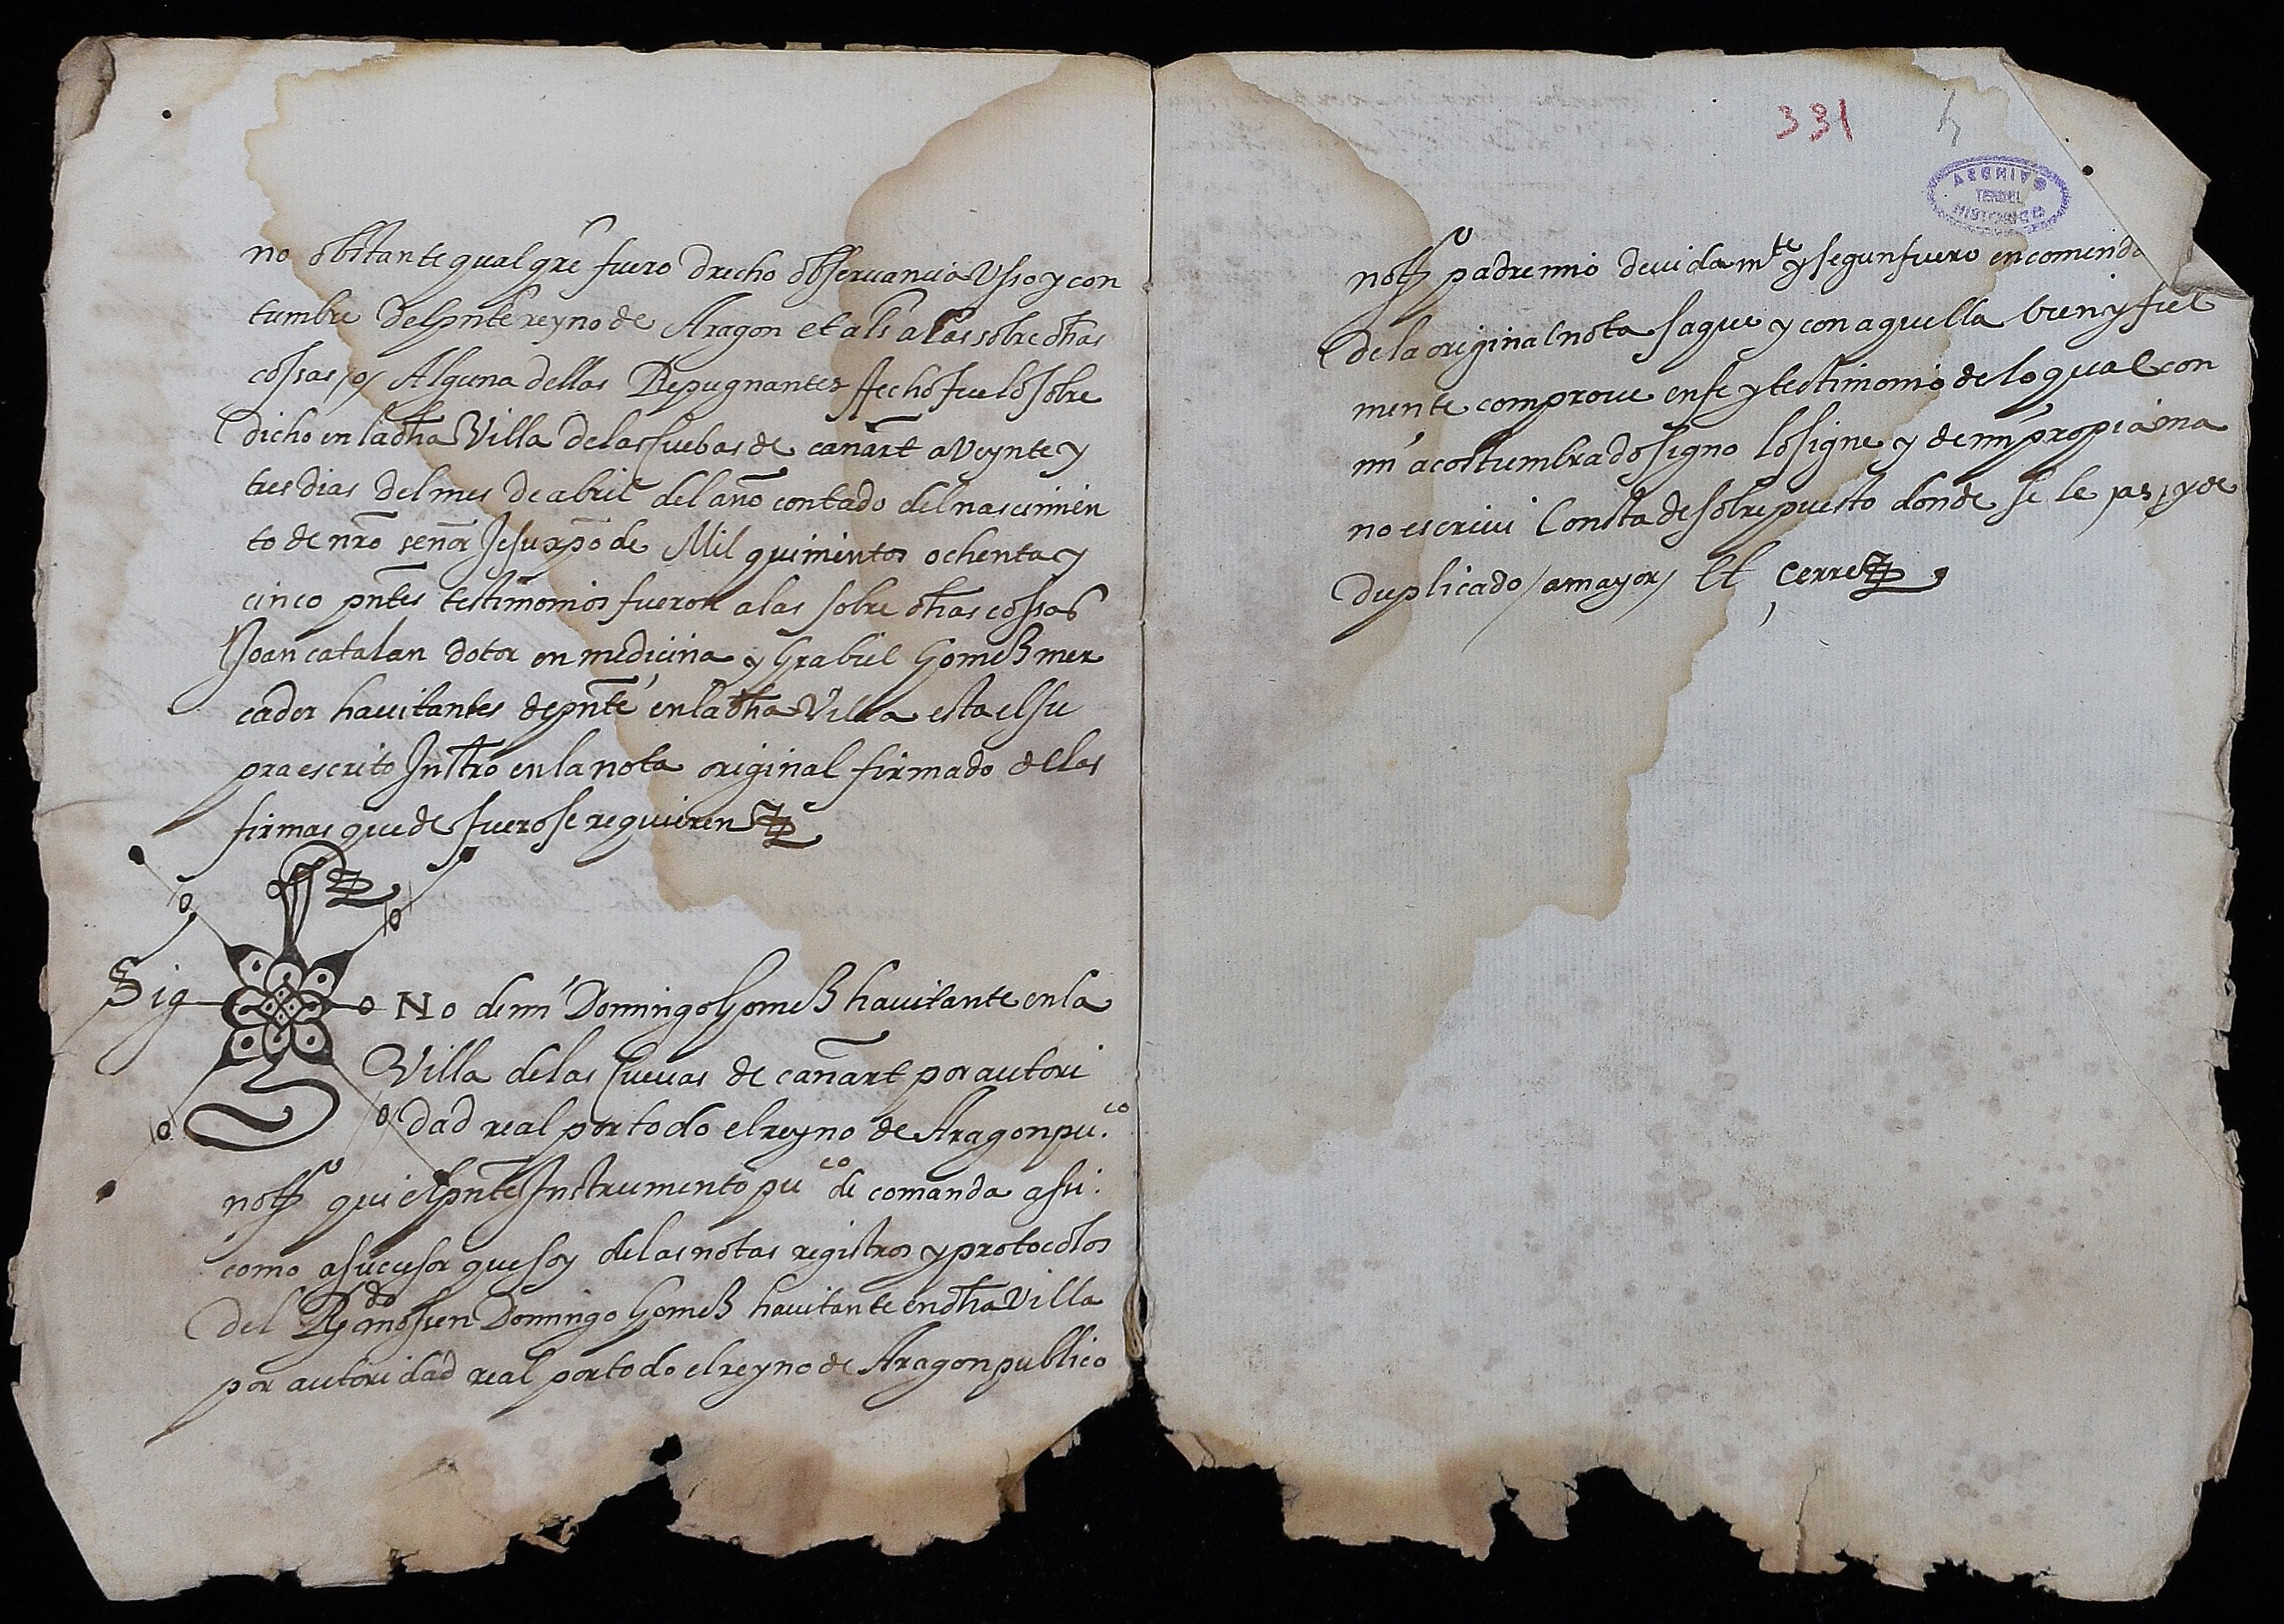 no obstante qual qre fuero drecho observancia Usso y con
tumbre del pnte reyno de Aragon et als a las sobre dhas
cossas /o/ Alguna dellas Repugnantes fecho fue lo sobre
dicho en la dha Villa de las Cuebas de cañart a Veynte y
tres dias del mes de abril del año contado del nascimien
to de nro señor Jesu xpo de Mil quinientos ochenta y
cinco pntes testimonios fueron a las sobre dhas cossas
Joan catalan dotor en medicina y Grabiel Gomeß mer
cader hauitantes de pnte en la dha Villa esta el su
praescrito Instro en la nota original firmado de las
firmas que de fuero se requieren
Sig No de mi Domingo Gomeß hauitante en la
Villa de las Cueuas de cañart por autori
dad real por todo el reyno de Aragon pu.co
notº qui el pnte Instrumento puco de comanda assi
como a sucessor que soy de las notas registros y protocolos
del Rdo mossen Domingo Gomeß hauitante en dha Villa
por autoridad real por todo el reyno de Aragon publico
331 4
ARCHIVO
TERUEL
HISTORICO
notº padre mio deuidamte y segun fuero encomend
de la original nota saque y con aquella bien y fiel
mente comproue en fe y testimonio de lo qual con
mi acostumbrado signo lo signe y de mi propia ma
no escriui Consta de sobrepuesto donde se le /as/ y de
duplicado /amayor/ Et Cerre